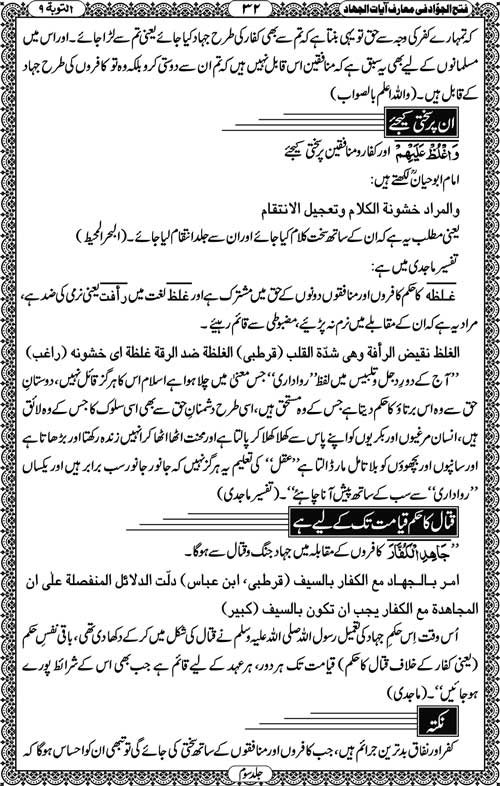 فتح الجوّاد فی معارف آیات الجہاد ۳۲ التوبة ۹
کہ تمہارے کفر کی وجہ سے حق تو یہی بنتا ہے کہ تم سے بھی کفار کی طرح جہاد کیا جائے یعنی تم سے لڑا جائے۔ اور اس میں
مسلمانوں کے لیے بھی یہ سبق ہے کہ منافقین اس قابل نہیں ہیں کہ تم ان سے دوستی کرو بلکہ وہ تو کافروں کی طرح جہاد
کے قابل ہیں۔ (واللہ اعلم بالصواب)
ان پر سختی کیجئے
وَاغْلُظْ عَلَيْهِمْ اور کفار و منافقین پر سختی کیجئے
امام ابوحیانؒ لکھتے ہیں:
والمراد خشونة الكلام وتعجيل الانتقام
یعنی مطلب یہ ہے کہ ان کے ساتھ سخت کلام کیا جائے اور ان سے جلد انتقام لیا جائے۔ (البحر المحیط)
تفسیر ماجدی میں ہے:
غلظہ کا حکم کافروں اور منافقوں دونوں کے حق میں مشترک ہے اور غلظ لغت میں رأفت یعنی نرمی کی ضد ہے،
مراد یہ ہے کہ ان کے مقابلے میں نرم نہ پڑیئے، مضبوطی سے قائم رہیئے۔
الغلظ نقيض الرأفة وهى شدّة القلب (قرطبی) الغلظة ضد الرقة غلظة ای خشونه (راغب)
’’آج کے دورِ دجل و تلبیس میں لفظ ’’رواداری‘‘ جس معنیٰ میں چلا ہوا ہے اسلام اس کا ہرگز قائل نہیں، دوستانِ
حق سے وہ اس برتاؤ کا حکم دیتا ہے جس کے وہ مستحق ہیں، اسی طرح دشمنانِ حق سے بھی اسی سلوک کا جس کے وہ لائق
ہیں، انسان مرغیوں اور بکریوں کو اپنے پاس سے کھلا کھلا کر پالتا ہے اور محنت اٹھا اٹھا کر انہیں زندہ رکھتا اور بڑھاتا ہے
اور سانپوں اور بچھوؤں کو بلا تامل مار ڈالتا ہے ’’عقل‘‘ کی تعلیم یہ ہرگز نہیں کہ جانور جانور سب برابر ہیں اور یکساں
’’رواداری‘‘ سے سب کے ساتھ پیش آنا چاہئے‘‘۔ (تفسیر ماجدی)
قتال کا حکم قیامت تک کے لیے ہے
’’جَاهِدِ الْكُفَّارَ کافروں کے مقابلہ میں جہاد جنگ و قتال سے ہوگا۔
امر بالجهاد مع الكفار بالسيف (قرطبی، ابن عباس) دلّت الدلائل المنفصلة علٰى ان
المجاهدة مع الكفار يجب ان تكون بالسيف (کبیر)
اُس وقت اِس حکمِ جہاد کی تعمیل رسول اللہ صلی اللہ علیہ وسلم نے قتال کی شکل میں کر کے دکھا دی تھی، باقی نفسِ حکم
(یعنی کفار کے خلاف قتال کا حکم) قیامت تک ہر دور، ہر عہد کے لیے قائم ہے جب بھی اس کے شرائط پورے
ہو جائیں‘‘۔ (ماجدی)
نکتہ
کفر اور نفاق بدترین جرائم ہیں، جب کافروں اور منافقوں کے ساتھ سختی کی جائے گی تو تبھی ان کو احساس ہوگا کہ
جلد سوم